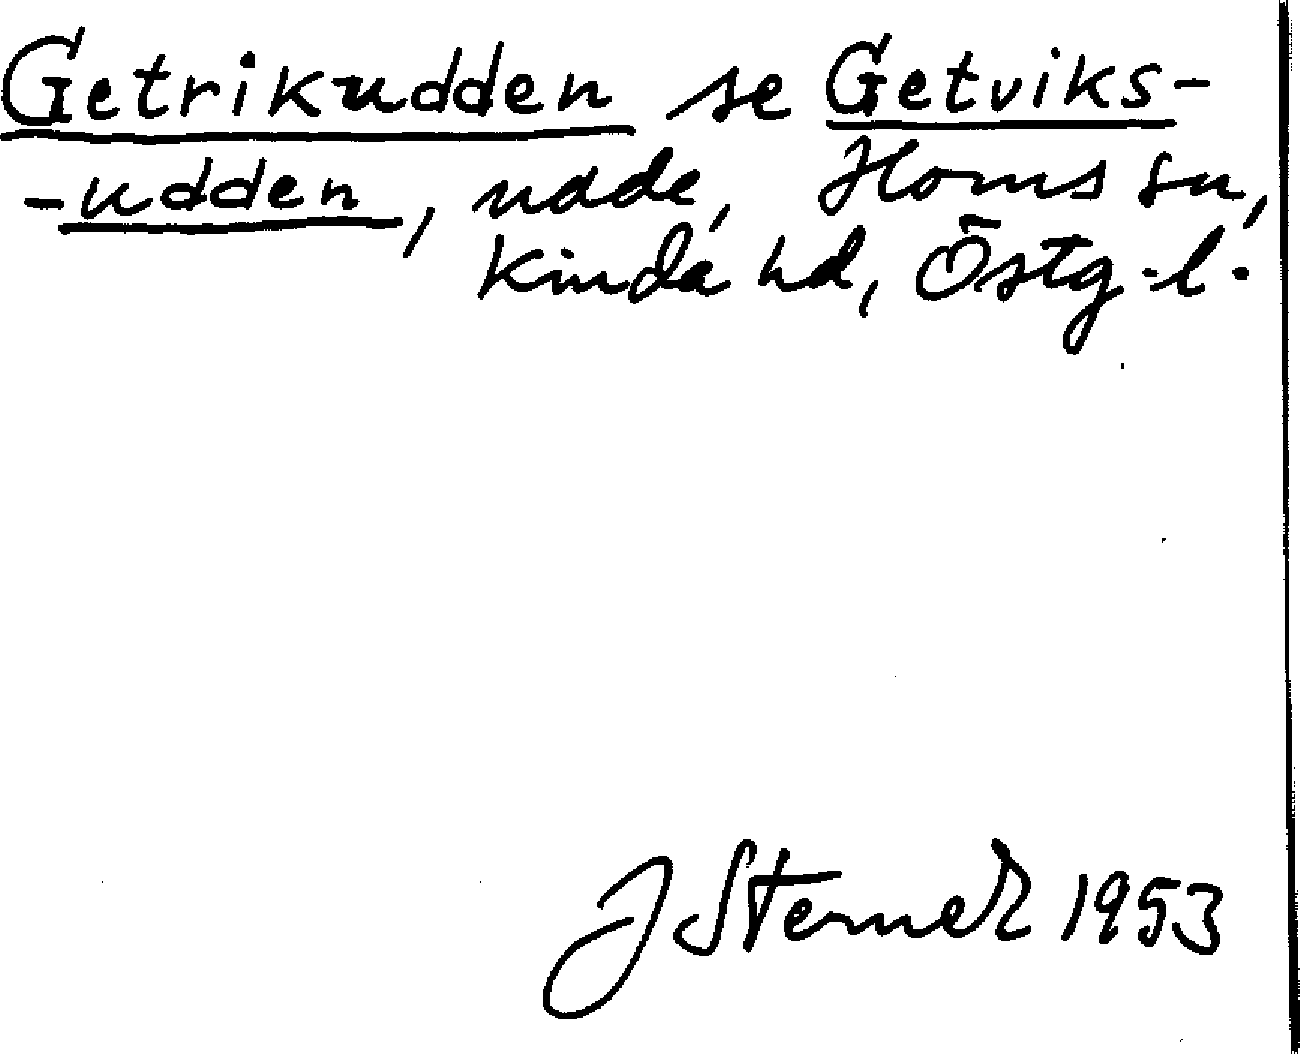 Getrikudden se Getviks-
-udden, udde, Horns sn,
Kinda hd, Östg.l.
J Sterner 1953